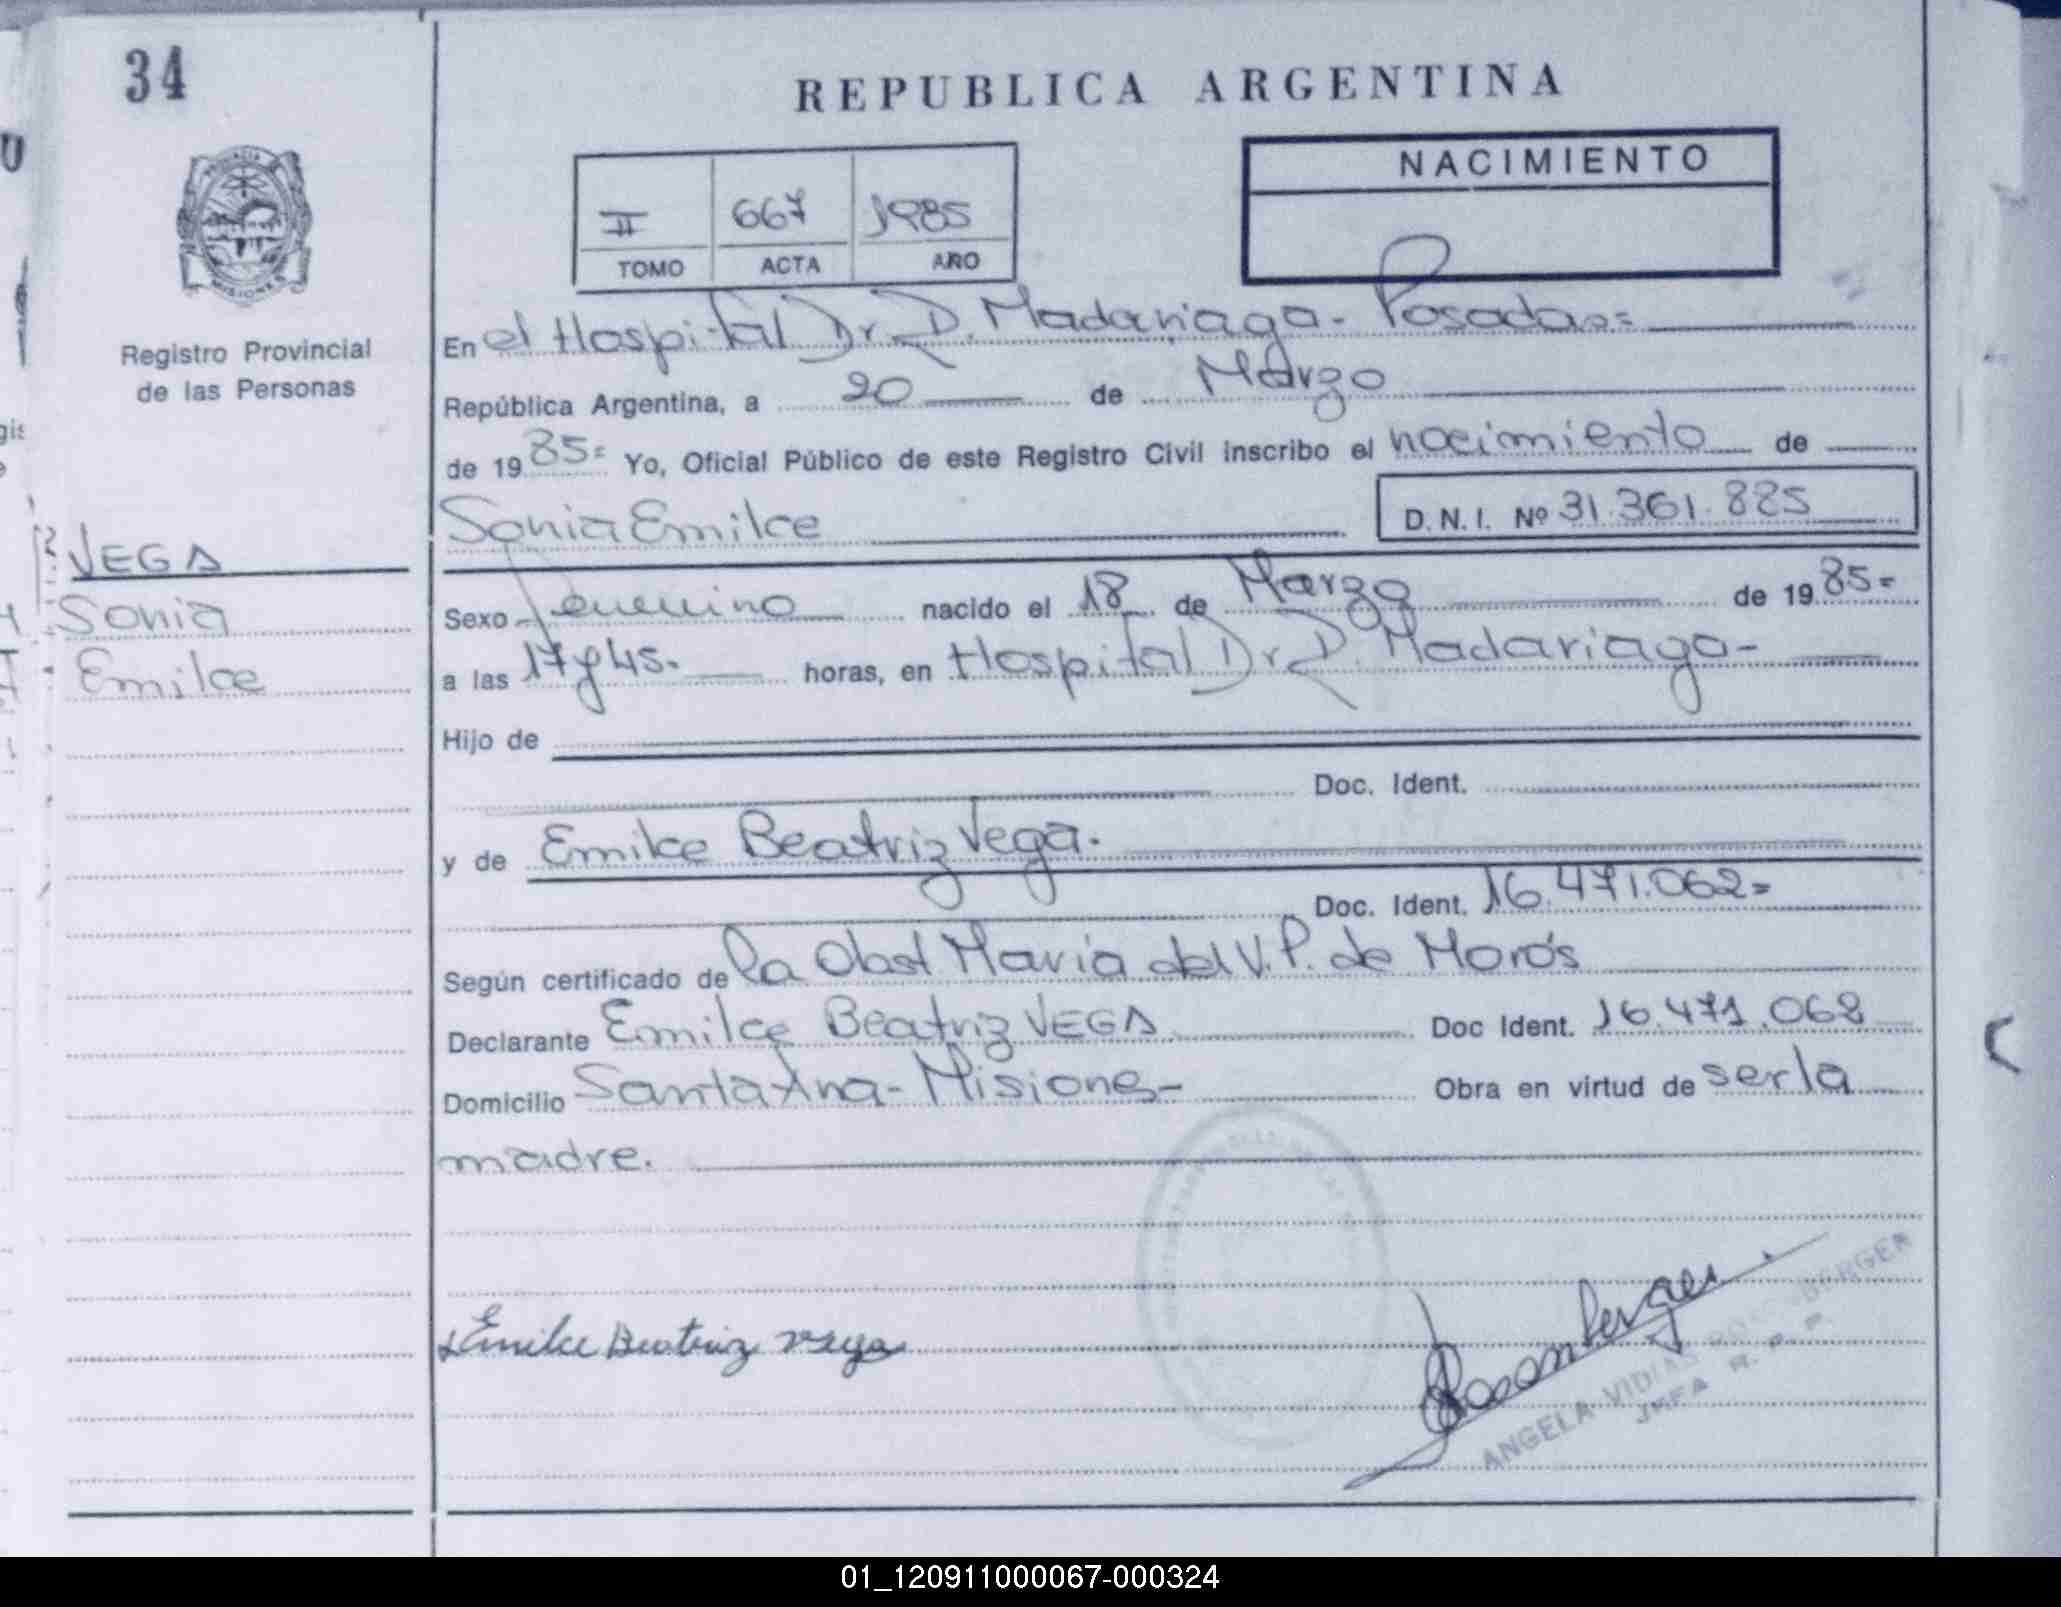 34
REPUBLICA ARGENTINA
NACIMIENTO
II 667 1985
TOMO ACTA AÑO
PROVINCIA
MISIONES
Registro Provincial
de las Personas
En el Hospital Dr. R. Madariaga - Posadas=
República Argentina, a 20 de Marzo
de 1985= Yo, Oficial Público de este Registro Civil inscribo el nacimiento de
Sonia Emilce D.N.I. Nº 31.361.885
VEGA
Sonia
Emilce
Sexo femenino nacido el 18 de Marzo de 1985=
a las 17 y 45. horas, en Hospital Dr. R. Madariaga-
Hijo de
Doc. Ident.
y de Emilce Beatriz Vega.
Doc. Ident. 16.471.062=
Según certificado de la Obst María del V. P. de Morós
Declarante Emilce Beatriz VEGA Doc Ident. 16.471.062
Domicilio Santa Ana - Misiones - Obra en virtud de ser la
madre.
Emilce Beatriz Vega
ANGELA VIDIAS ROSENBERGER
JEFA R. P. P.
01_120911000067-000324